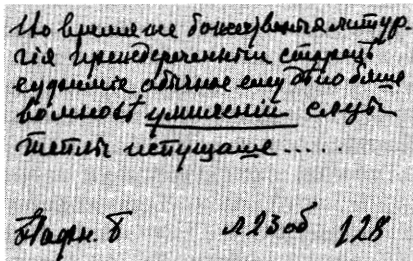 Во время же божественыя литур-
гія преждереченныи старецъ
еуѳиміе обычное ему дѣло бяше
во мнозѣ умиленіи слезы
теплы испущаше.....
Пафн. Б л 23 об 128